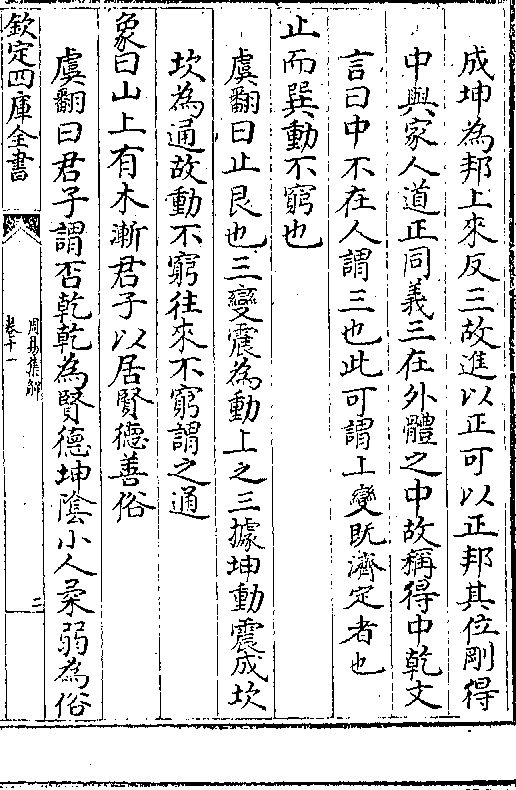 成坤為邦上來反三故進以正可以正邦其位剛得
中與家人道正同義三在外體之中故稱得中乾文
言曰中不在人謂三也此可謂上變既濟定者也
止而巽動不窮也
虞翻曰止艮也三變震為動上之三據坤動震成坎
坎為通故動不窮往來不窮謂之通
象曰山上有木漸君子以居賢德善俗
虞翻曰君子謂否乾乾為賢德坤陰小人柔弱為俗
欽定四庫全書
周易集解
卷十一
二